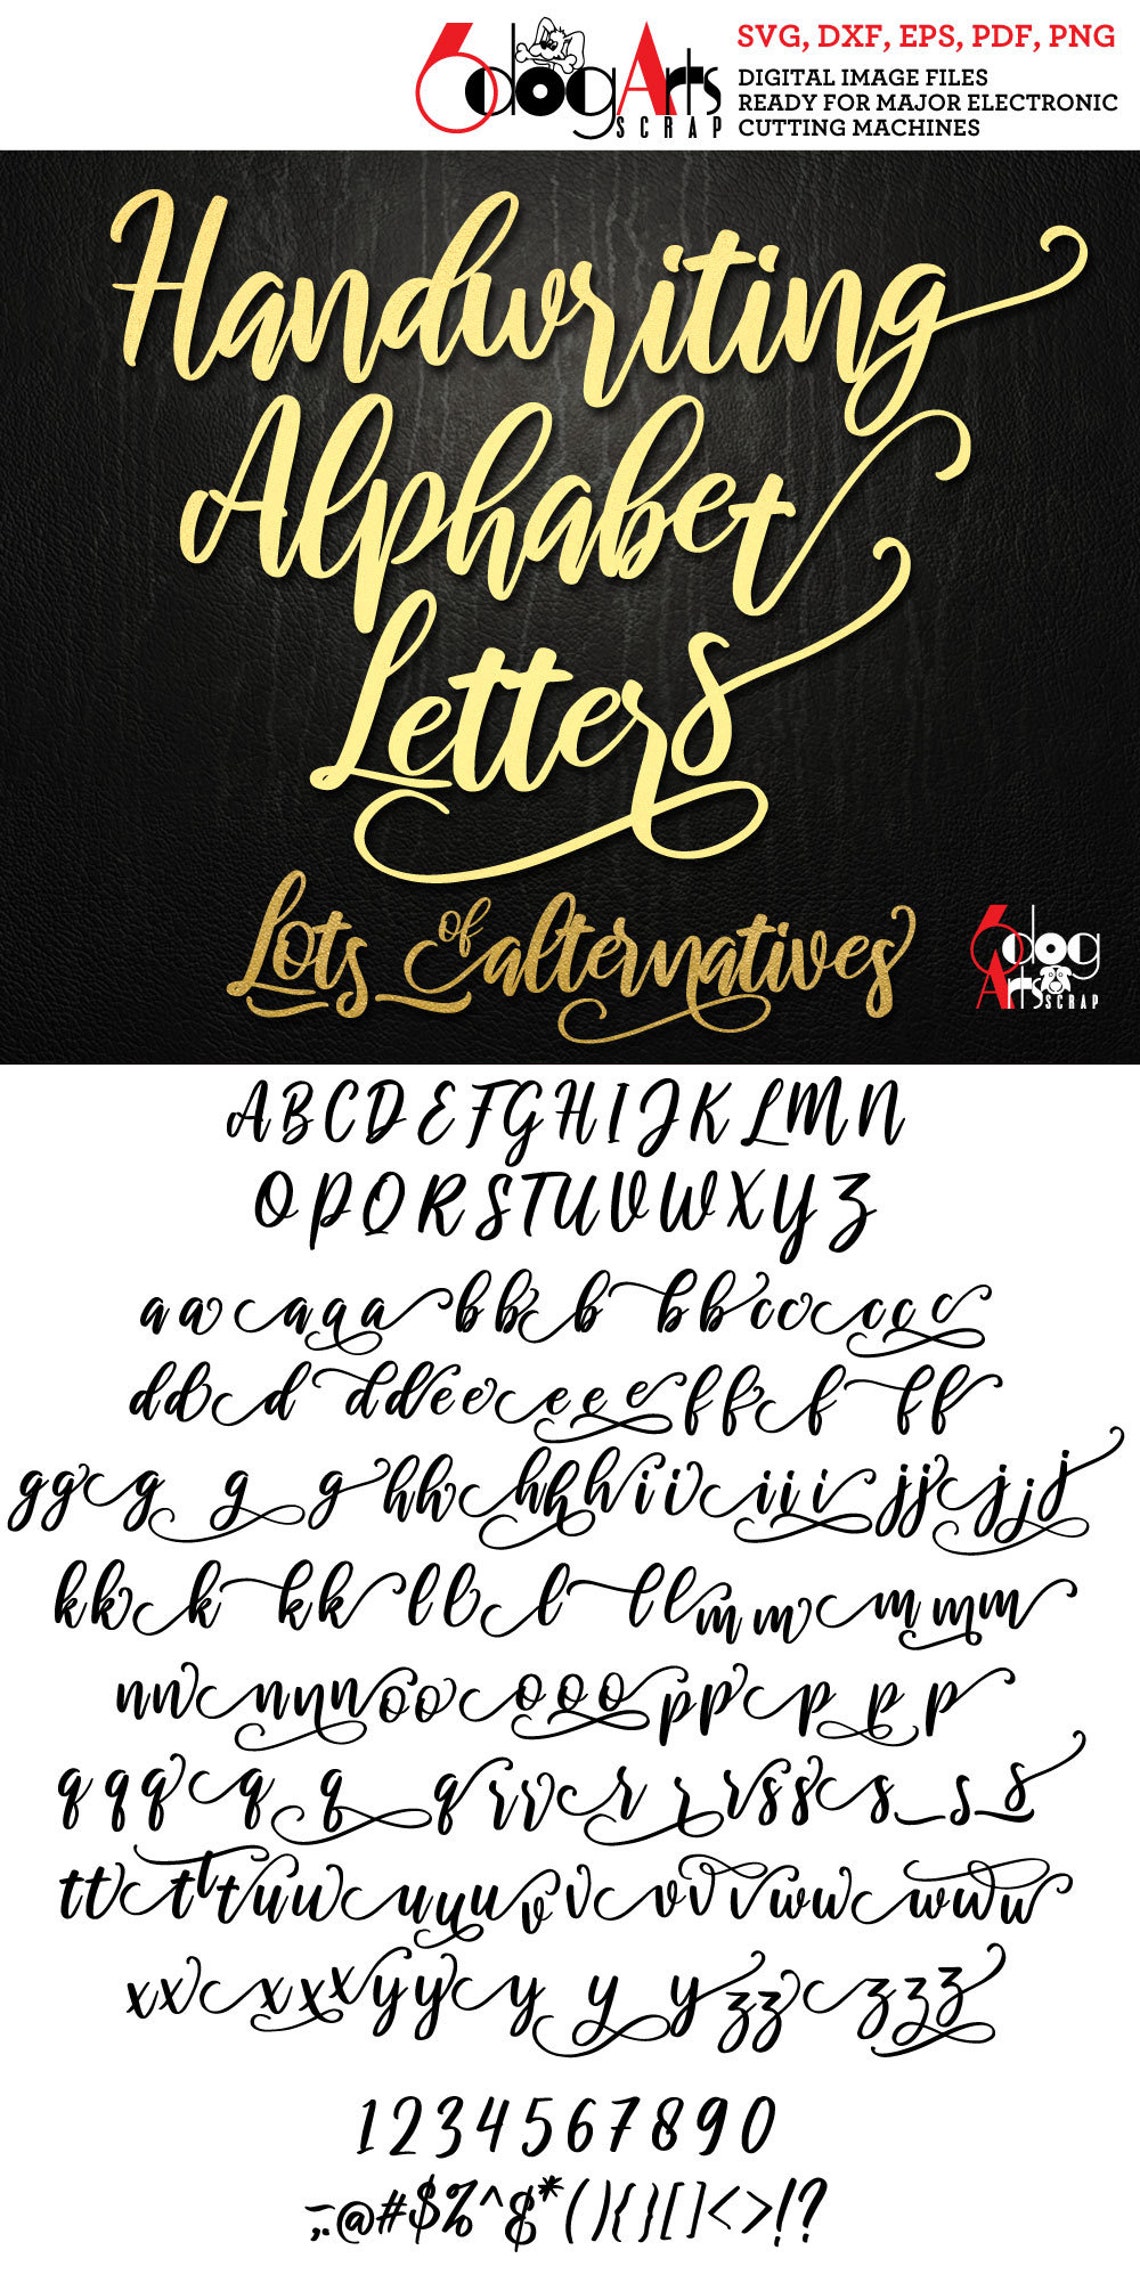 6dogArts
SCRAP
SVG, DXF, EPS, PDF, PNG
DIGITAL IMAGE FILES
READY FOR MAJOR ELECTRONIC
CUTTING MACHINES
Handwriting
Alphabet
Letters
Lots of alternatives
6dog
Arts SCRAP
A B C D E F G H I J K L M N
O P Q R S T U V W X Y Z
a a a a a b b b b b c c c c c
d d d d d e e e e e f f f f f
g g g g g h h h h h i i i i i j j j j j
k k k k k l l l l l m m m m m
n n n n n o o o o o p p p p p
q q q q q q r r r r r s s s s s
t t t t t u u u u u v v v v v w w w w w
x x x x x y y y y y z z z z z
1 2 3 4 5 6 7 8 9 0
~;:.@#$%^&*(){}[]<>!?